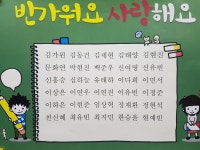 반가워요 사랑해요
김가원 김동건 김세현 김태양 김현진
문화연 박현진 백준우 신여명 신유빈
신홍승 심하늘 유태하 이다희 이민서
이상은 이연우 이연준 이유빈 이정준
이하은 이현준 임상혁 정재환 정현석
천신혜 최유빈 최지민 한승율 현예빈